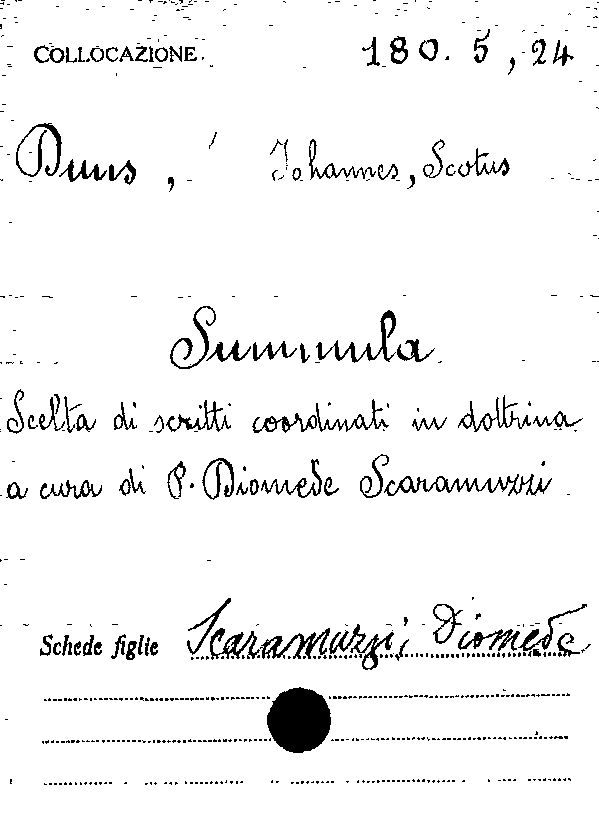 COLLOCAZIONE. 180. 5, 24
Duns, Johannes, Scotus
Summula
Scelta di scritti coordinati in dottrina
a cura di P. Diomede Scaramuzzi
Schede figlie Scaramuzzi, Diomede